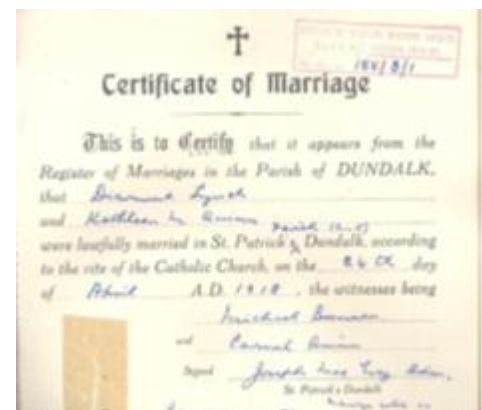 184/B/1
Certificate of Marriage
This is to Certify that it appears from the
Register of Marriages in the Parish of DUNDALK,
that Diarmuid Lynch
and Kathleen M. Quinn
were lawfully married in St. Patrick's Dundalk, according
to the rite of the Catholic Church, on the 24th day
of April A.D. 1918, the witnesses being
Michael
and Carmel Quinn
Signed Joseph Adm.
St. Patrick's Dundalk